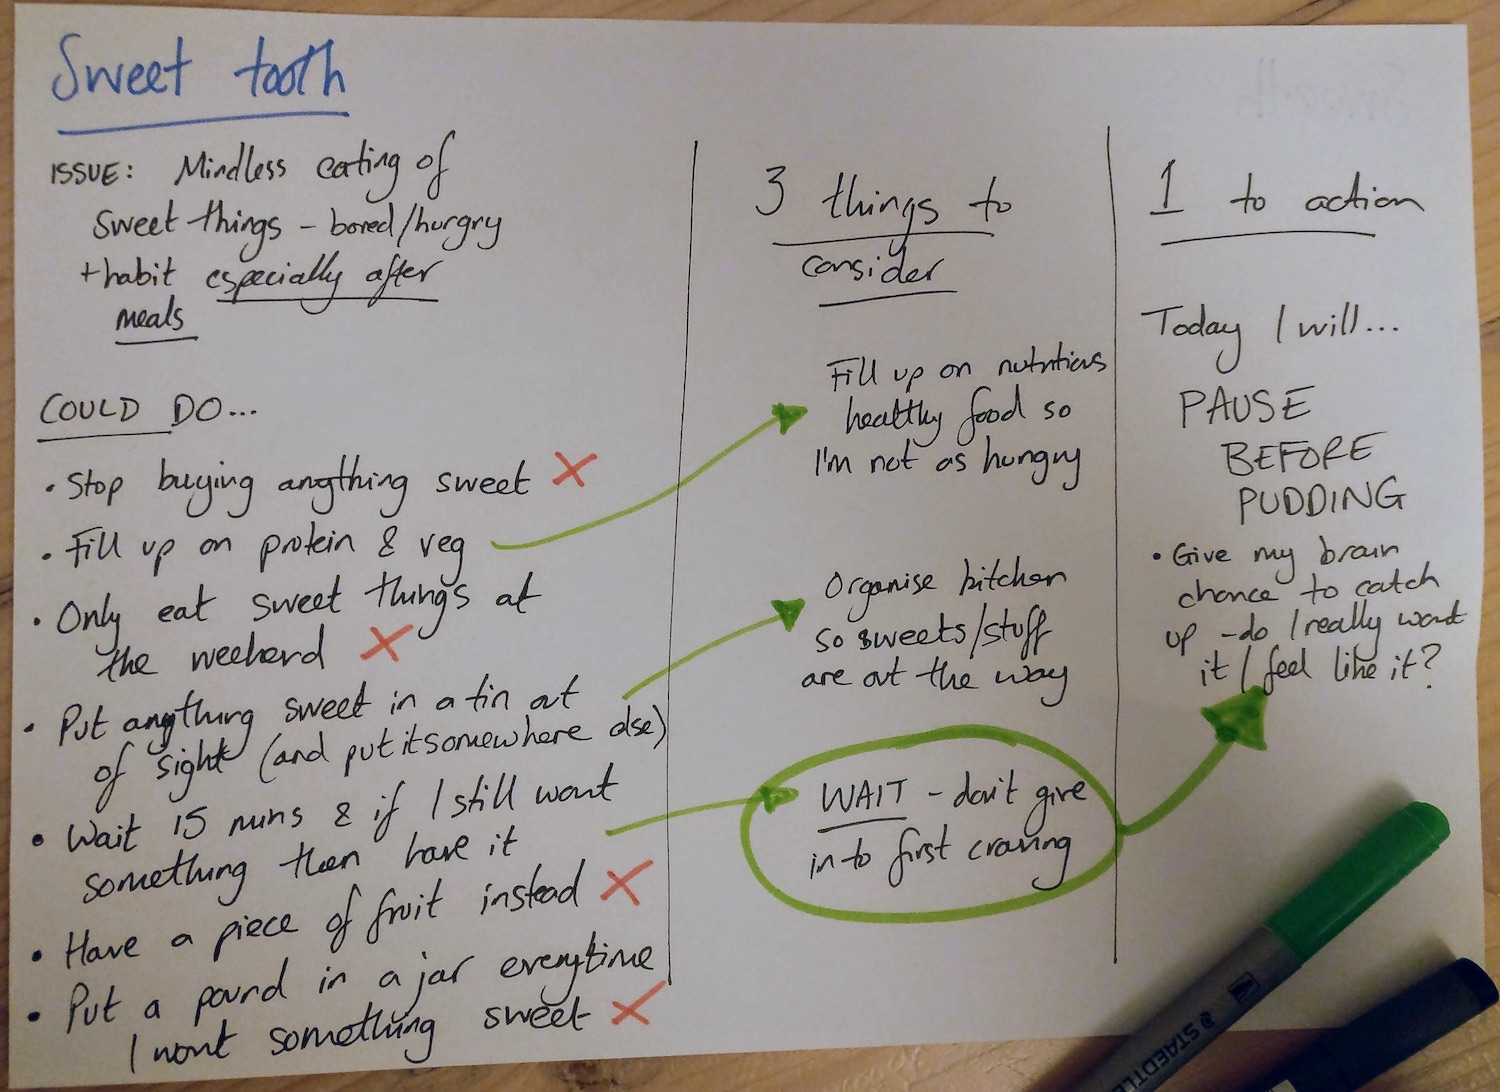 Sweet tooth
ISSUE: Mindless eating of
sweet things - bored/hungry
+ habit especially after
meals
COULD DO...
• Stop buying anything sweet X
• Fill up on protein & veg
• Only eat sweet things at
the weekend X
• Put anything sweet in a tin out
of sight (and put it somewhere else)
• Wait 15 mins & if I still want
something then have it
• Have a piece of fruit instead X
• Put a pound in a jar everytime
I want something sweet X
3 things to
consider
Fill up on nutritious
healthy food so
I'm not as hungry
Organise kitchen
so sweets/stuff
are out the way
WAIT - don't give
in to first craving
1 to action
Today I will...
PAUSE
BEFORE
PUDDING
• Give my brain
chance to catch
up - do I really want
it / feel like it?
STAEDTLE